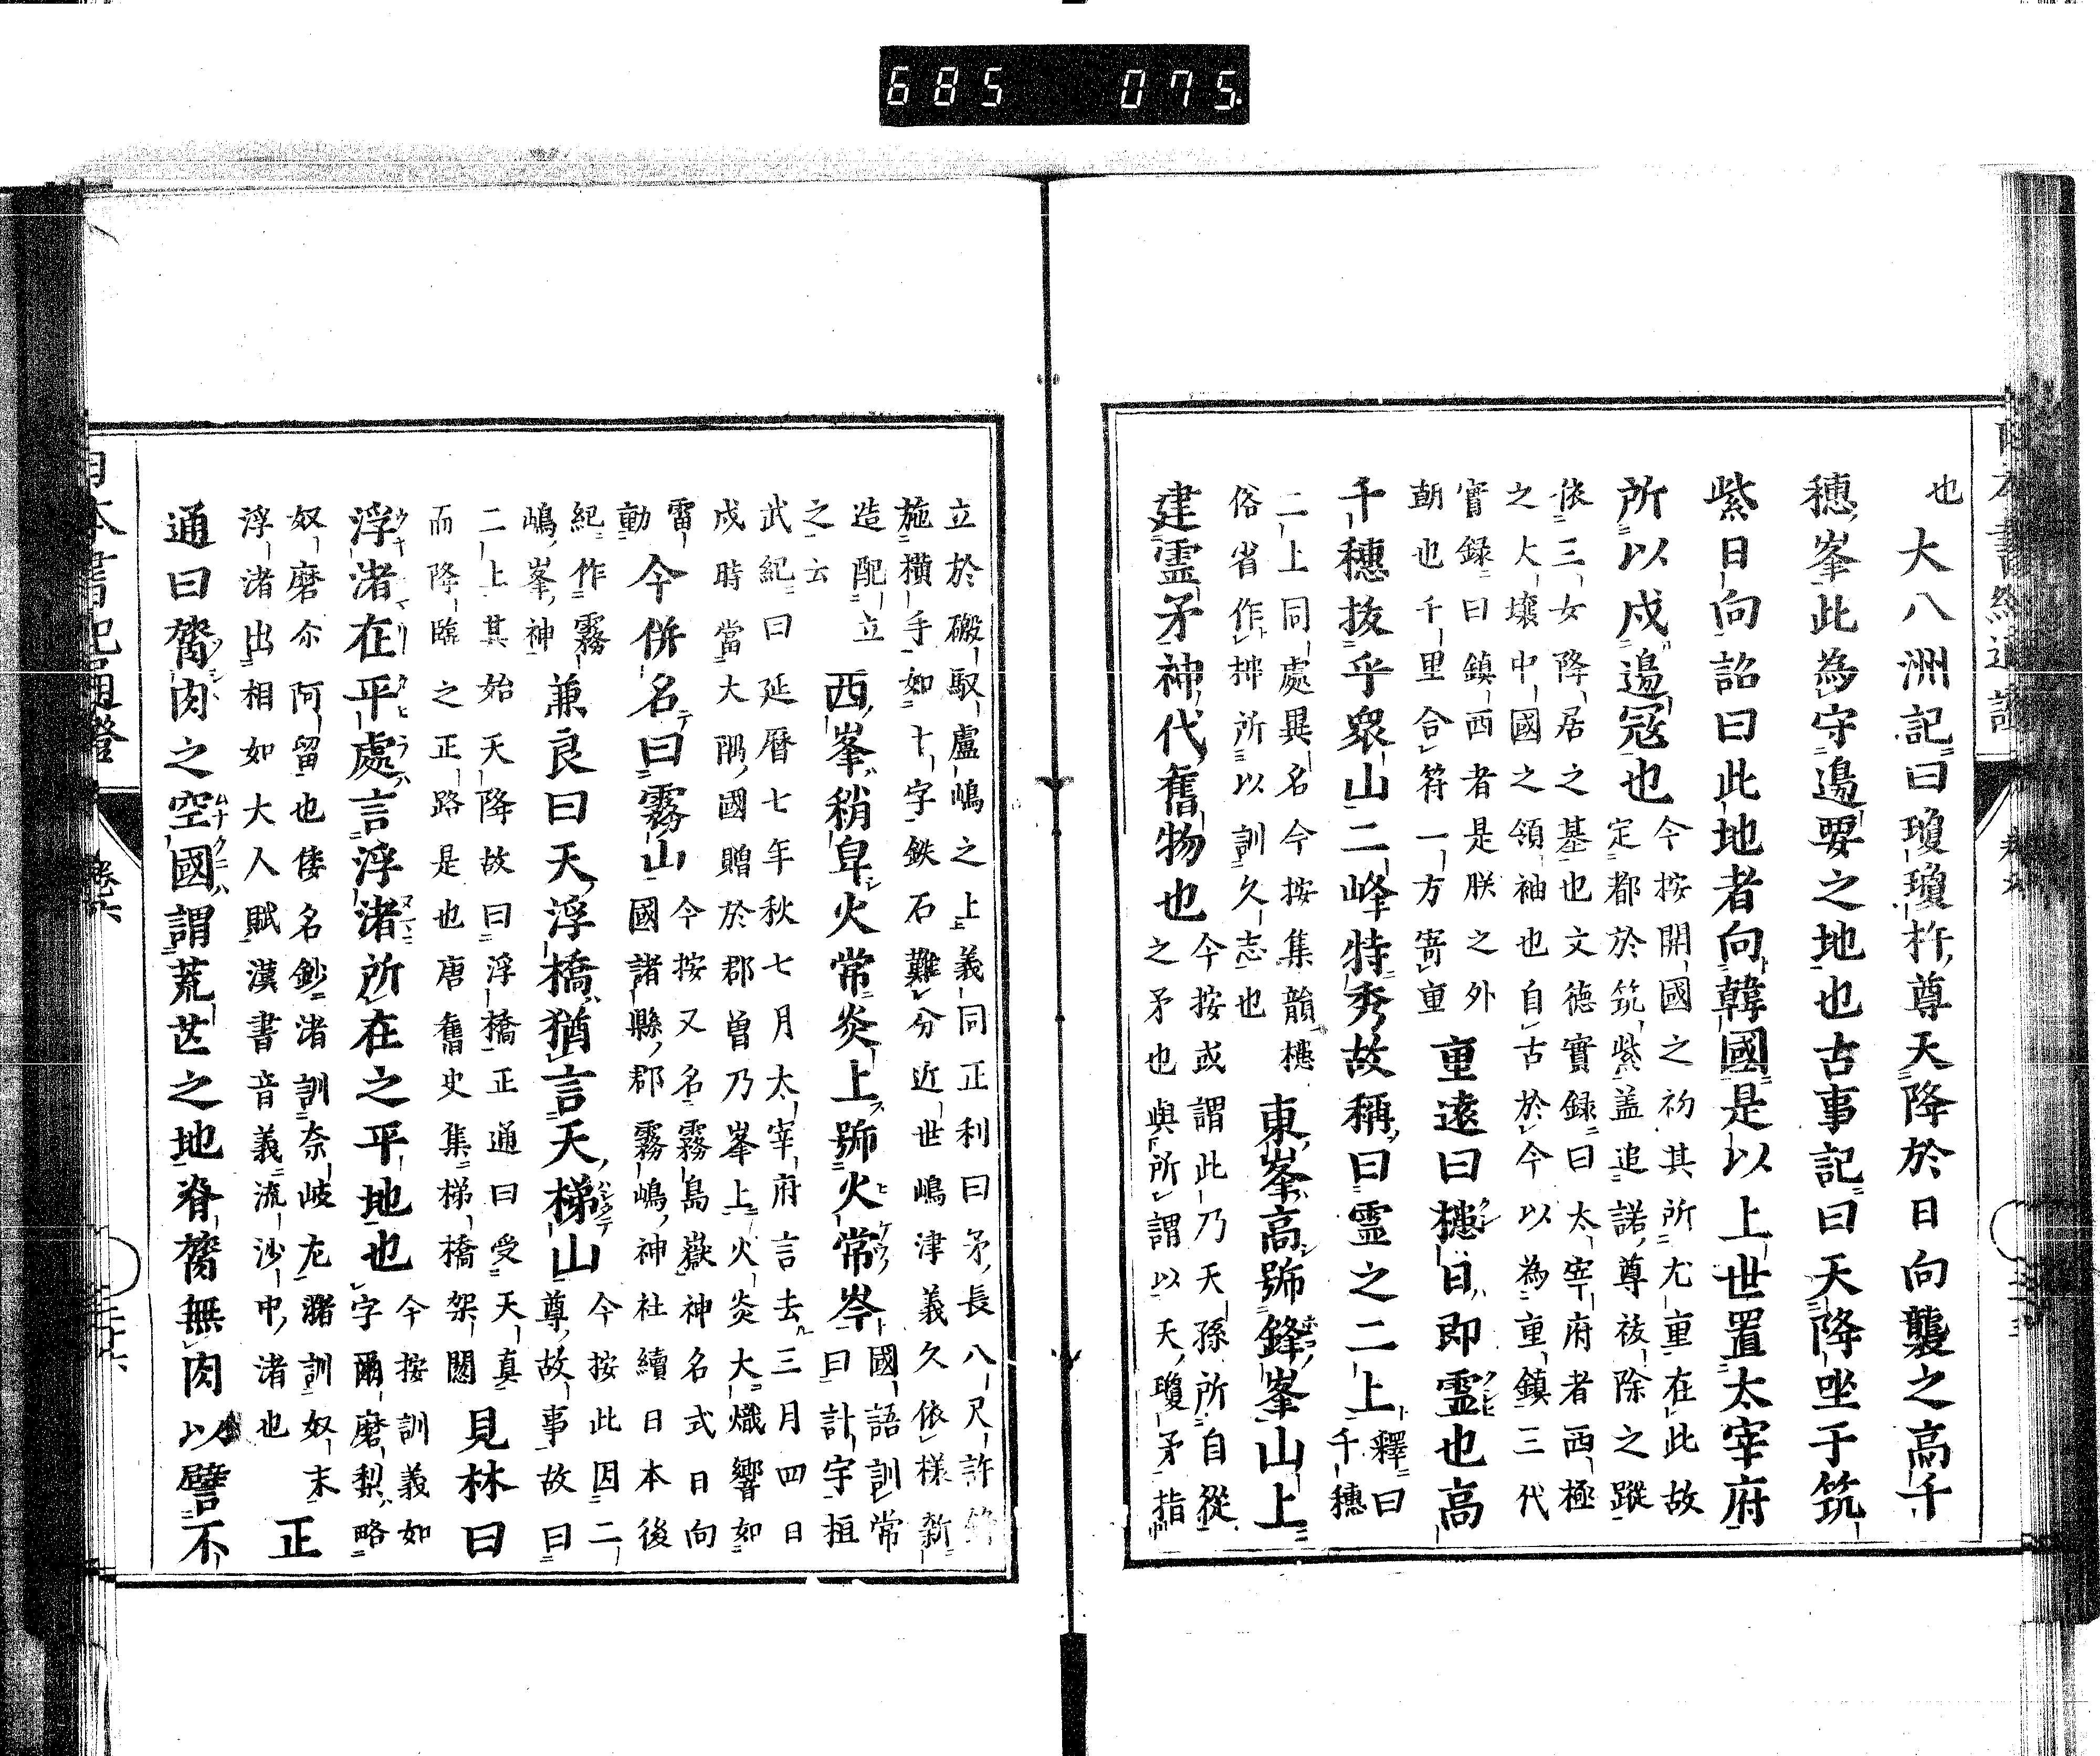 685 075
也大八洲記曰瓊瓊杵尊天降於日向襲之高千
穗峯此為守邊要之地也古事記曰天降坐于筑
紫日向詔曰此地者向韓國是以上世置太宰府
所以戍邊寇也
今按開國之初其所尤重在此故
定都於筑紫盖追諾尊祓除之蹤
依三女降居之基也文德實録曰太宰府者西極
之大壤中國之領袖也自古於今以為重鎮三代
實録曰鎮西者是朕之外
朝也千里合符一方寄重
重遠曰槵日即霊也高
千穗抜乎衆山二峰特秀故稱曰霊之二上
釋曰
千穗
二上同處異名今按集韻槵
俗省作𣏾所以訓久志也
東峯高号鋒峯山上
建霊矛神代舊物也
今按或謂此乃天孫所自從
之矛也與所謂以天瓊矛指
立於磤馭盧嶋之上義同正利曰矛長八尺許
施横手如十字鉄石難分近世嶋津義久依様新
造配立
之云
西峯稍卑火常炎上号火常岑
國語訓常
曰計宇桓
武紀曰延暦七年秋七月太宰府言去三月四日
戍時當大隅國贈於郡曽乃峯上火炎大熾響如
雷
動
今併名曰霧山
今按又名霧島嶽神名式日向
國諸縣郡霧嶋神社續日本後
紀作霧
嶋峯神
兼良曰天浮橋猶言天梯山
今按此因二
尊故事故曰
二上其始天降故曰浮橋正通曰受天真
而降臨之正路是也唐舊史集梯橋架閣
見林曰
浮渚在平處言浮渚所在之平地也
今按訓義如
字爾磨梨略
奴磨尒阿留也倭名鈔渚訓奈岐左潴訓奴末
浮渚出相如大人賦漢書音義流沙中渚也
正
通曰膂肉之空國謂荒芒之地脊膂無肉以譬不
日本書紀通證